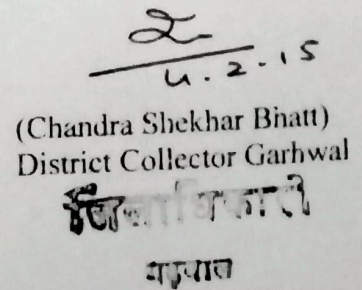 4.2.15
(Chandra Shekhar Bhatt)
District Collector Garhwal
जिलाधिकारी
गढ़वाल